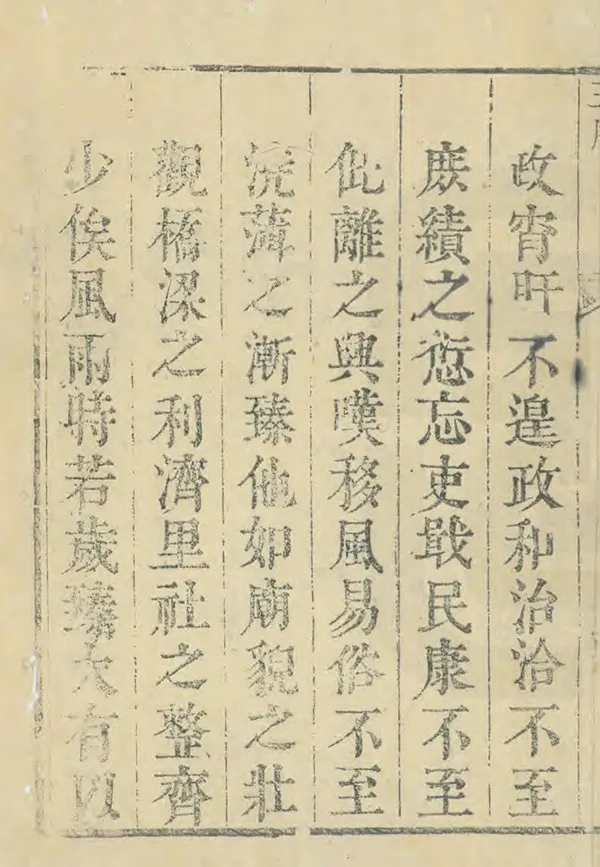 政宵旰不遑政和治洽不至
庶績之愆忘吏戢民康不至
仳離之興嘆移風易俗不至
澆薄之漸臻他如廟貌之壯
觀橋梁之利濟里社之整齊
少俟風雨時若歲臻大有以